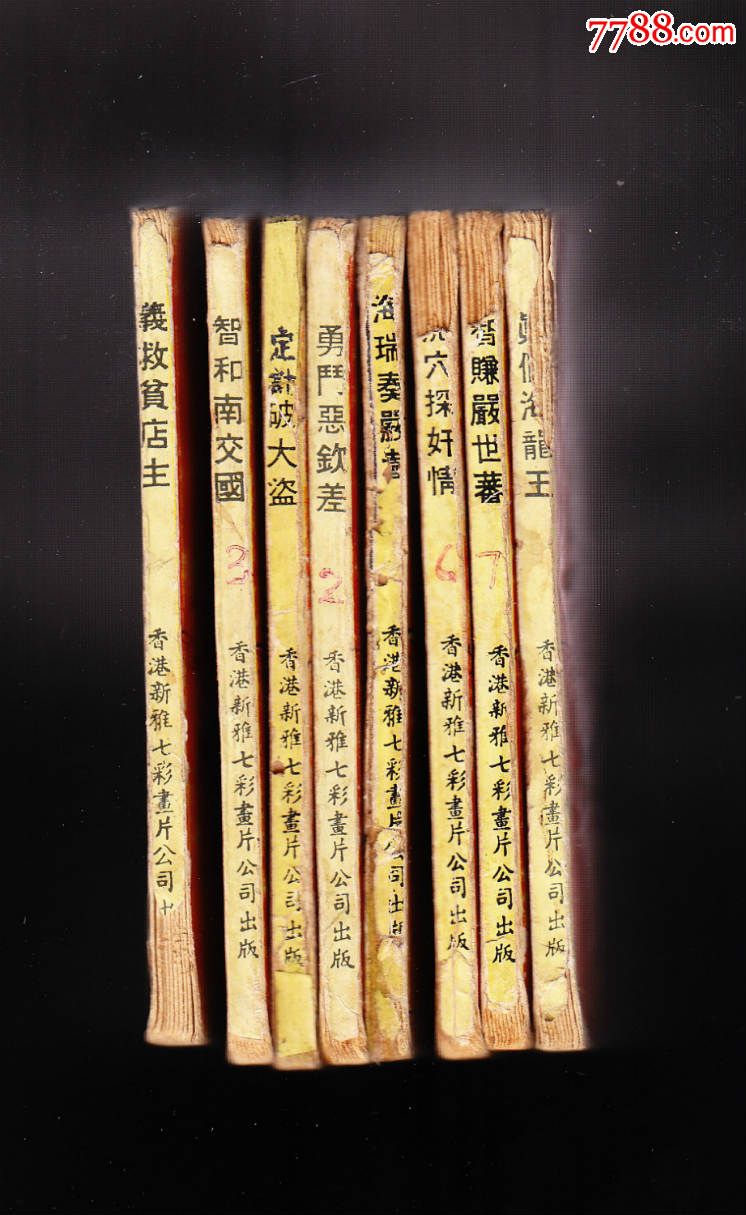 7788.com
義救貧店主
香港新雅七彩畫片公司
智和南交國
3
香港新雅七彩畫片公司出版
定計破大盜
香港新雅七彩畫片公司出版
勇鬥惡欽差
2
香港新雅七彩畫片公司出版
海瑞奏嚴嵩
香港新雅七彩畫片公司出版
穴探奸情
6
香港新雅七彩畫片公司出版
智賺嚴世蕃
7
香港新雅七彩畫片公司出版
海龍王
香港新雅七彩畫片公司出版